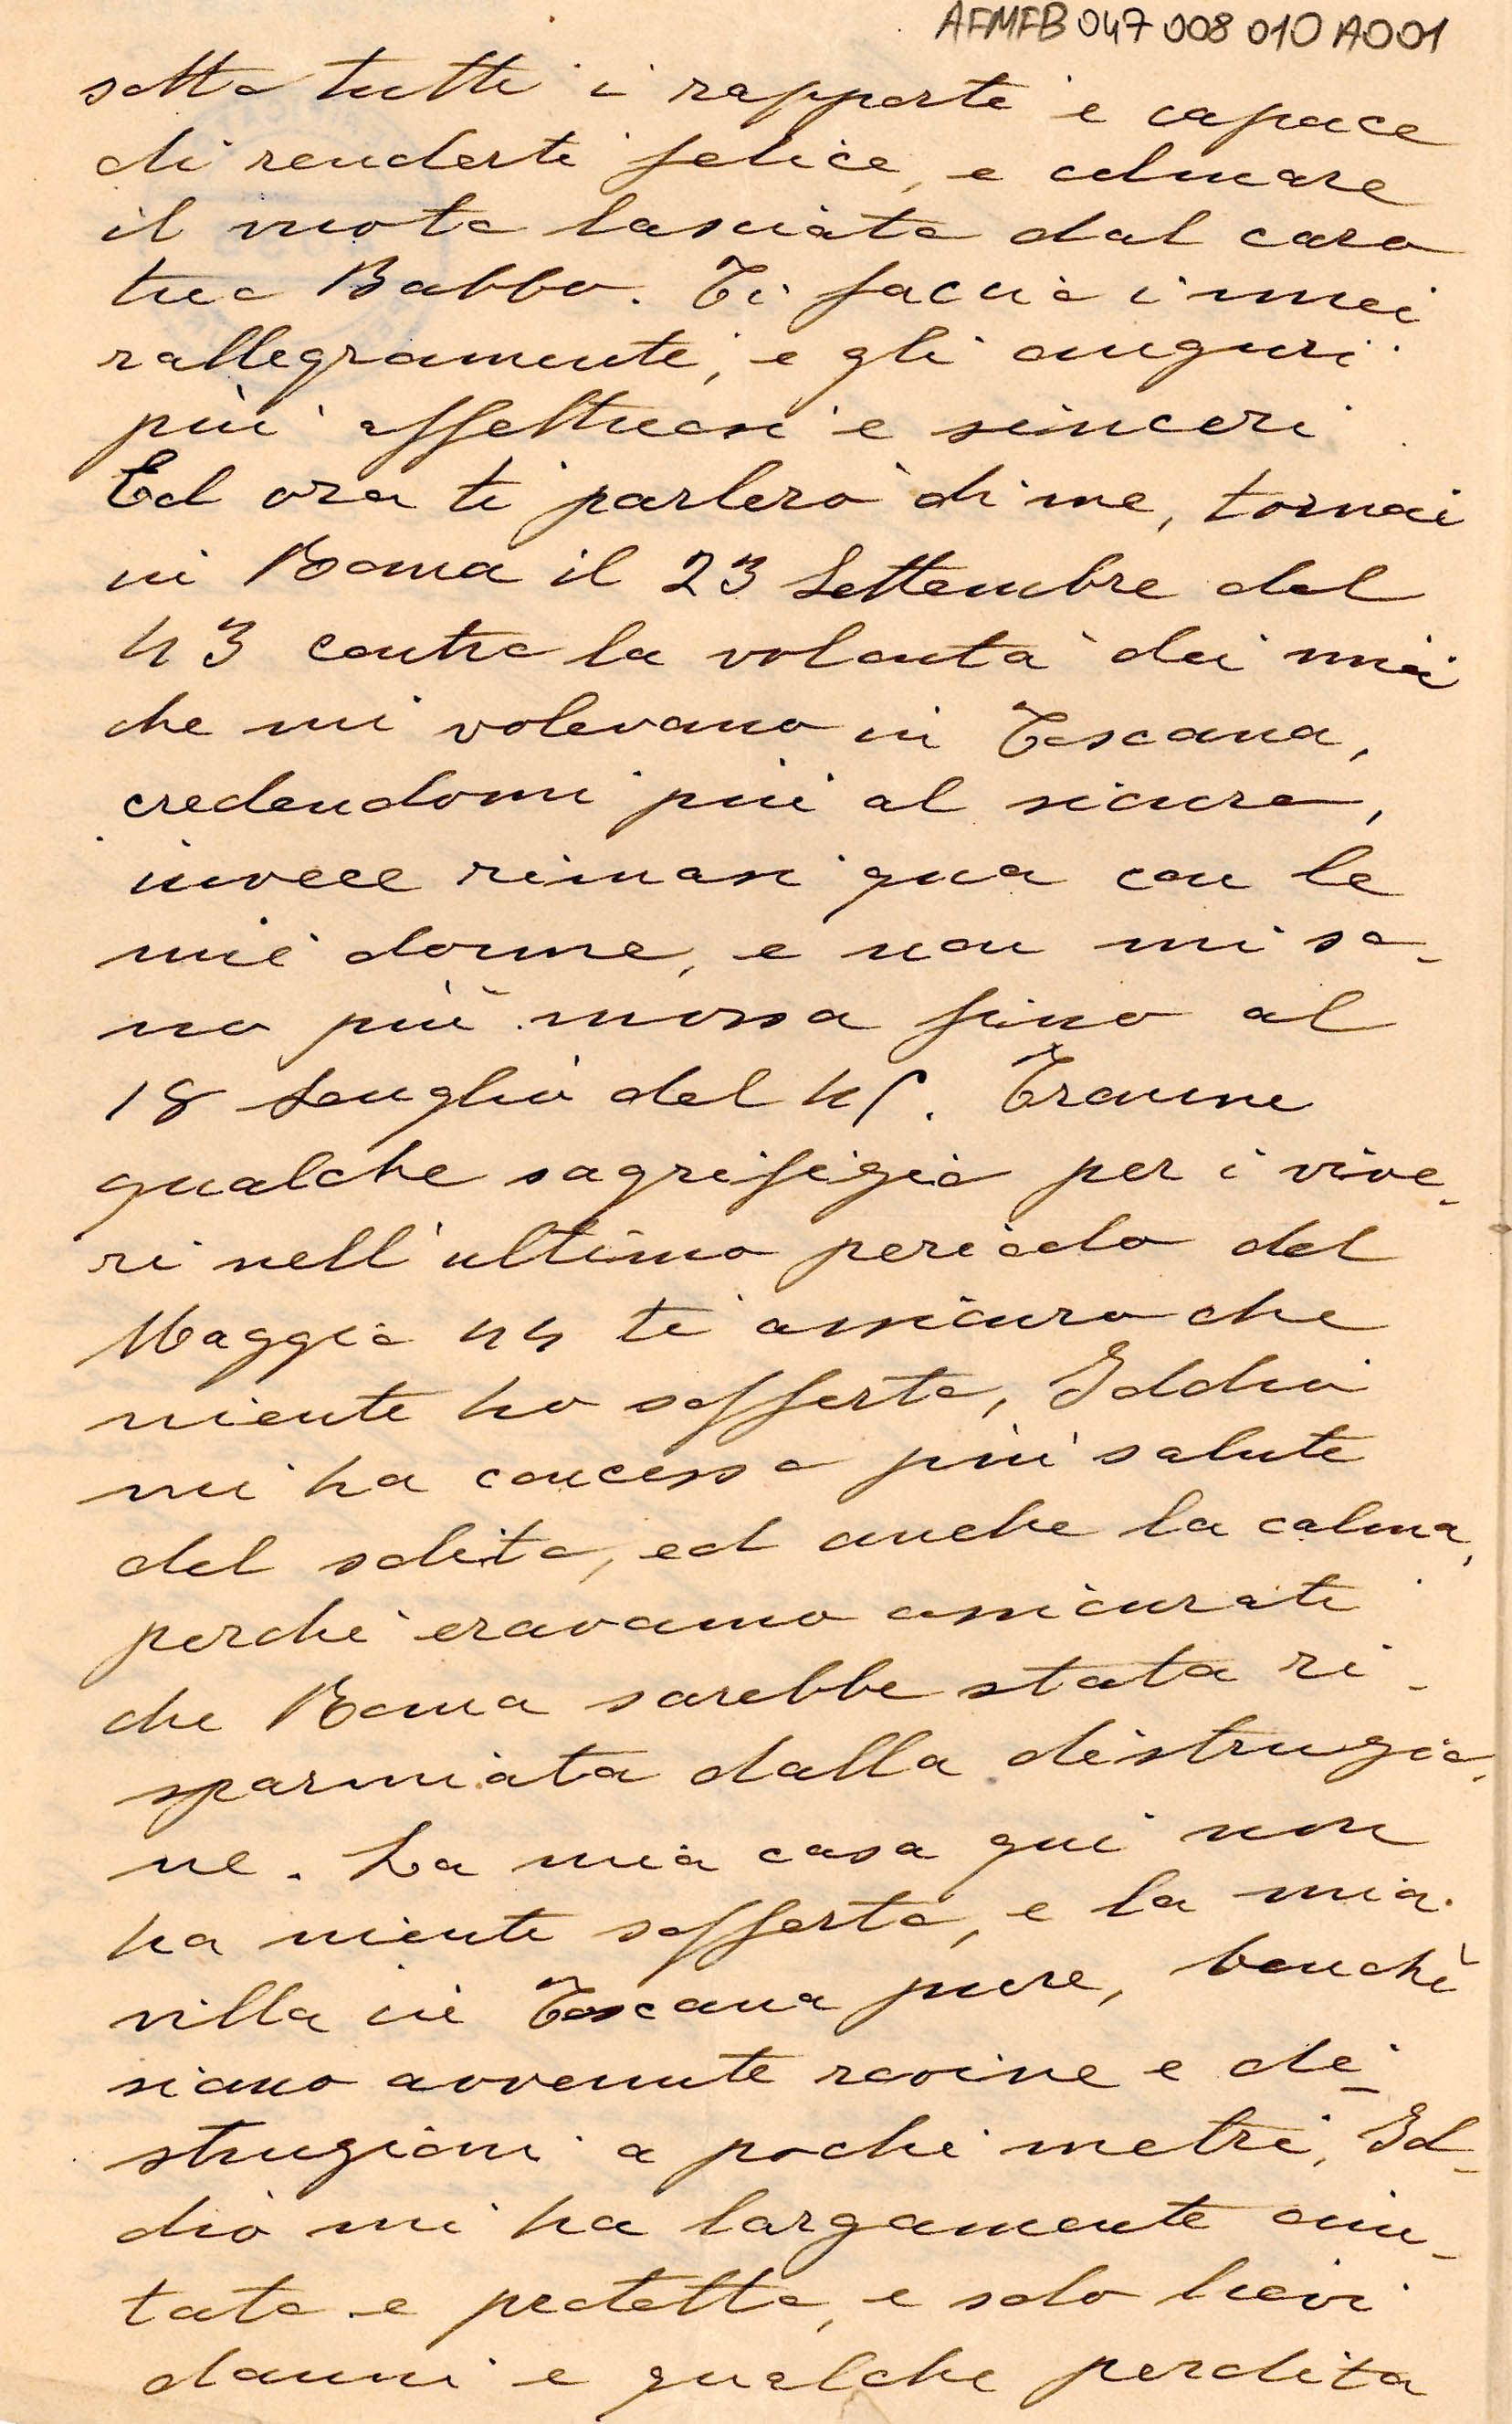 AFMFB 047 008 010 A001
sotto tutti i rapporti e capace
di renderti felice, e colmare
il vuoto lasciato dal caro
tuo Babbo. Ti faccio i miei
rallegramenti, e gli auguri
più affettuosi e sinceri
Ed ora ti parlerò di me, tornai
in Roma il 23 Settembre del
43 contro la volontà dei miei
che mi volevano in Toscana,
credendomi più al sicuro,
invece rimasi qua con le
mie donne, e non mi so-
no più mossa fino al
18 Luglio del 45. Tranne
qualche sagrifizio per i vive-
ri nell'ultimo periodo del
Maggio 44 ti assicuro che
niente ho sofferto, Iddio
mi ha concesso più salute
del solito, ed anche la calma,
perchè eravamo assicurati
che Roma sarebbe stata ri-
sparmiata dalla distruzio-
ne. La mia casa qui non
ha niente sofferto, e la mia
villa in Toscana pure, benchè
siano avvenute rovine e di-
struzioni a pochi metri, Id-
dio mi ha largamente aiu-
tato e protetto, e solo lievi
danni e qualche perdita